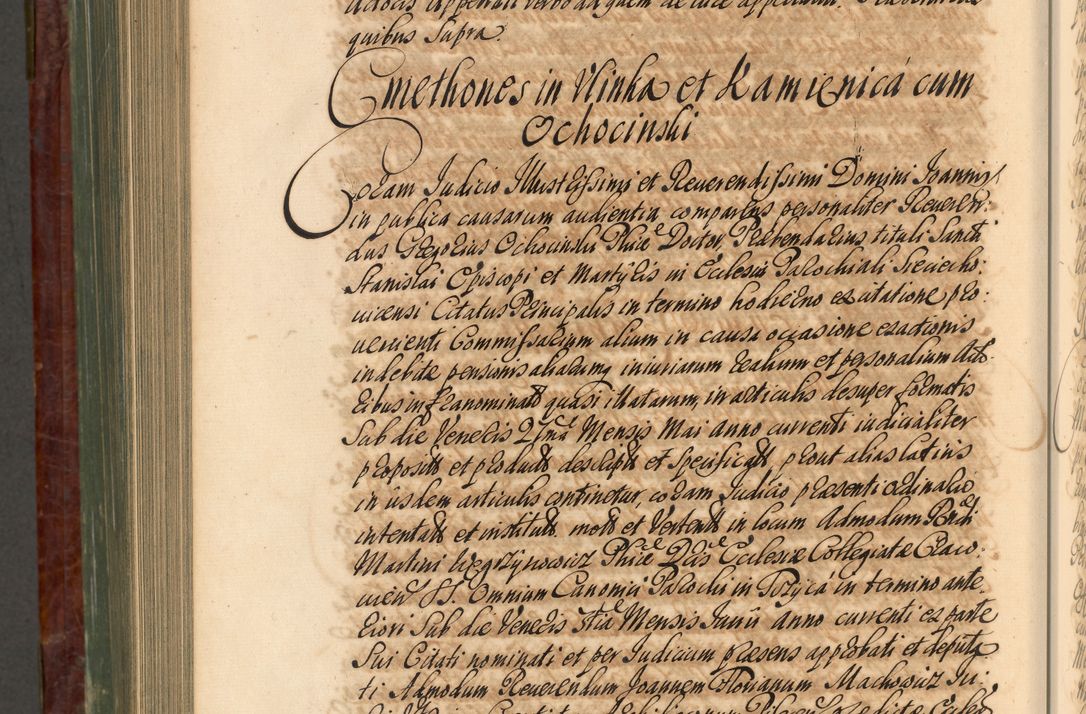 quibus Supra.
Cmethones in Ulinka et Kamienica cum
Ochocinski
Coram Judicio Illustrissimi et Reverendissimi Domini Joannis
in publica causarum audientia comparens personaliter Reveren:
dus Gregorius Ochocinski Phiae Doctor, Praebendarius tituli Sancti
Stanislai Episcopi et Martyris in Ecclesia Parochiali Sieciecho:
vicensi Citatus Principalis in termino hodierno ex citatione pro:
venienti Commissarium alium in causa occasione exactionis
indebitae pensionis aliarumq iniuriarum realium et personalium Acto:
ribus infranominatis quasi illatarum, in articulis desuper formatis
Sub die Veneris 21ma Mensis Mai anno currenti iudicialiter
propositis et productis descriptis et specificatis, prout alias latius
in iisdem articulis continetur, coram Judicio praesenti ordinario
intentatis et institutis motis et vertentis in locum Admodum Rndi
Martini Węgrzynowicz Phiae Dris Ecclesiae Collegiatae Craco:
vien SS. Omnium Canonici Parochi in in termino ante:
riori Sub die Veneris Mensis Junii Anno currenti ex parte
Sui Citati nominati et per Judicium praesens approbati et deputa
ti Admodum Reverendum Joannem Florianum Machowicz Ju: